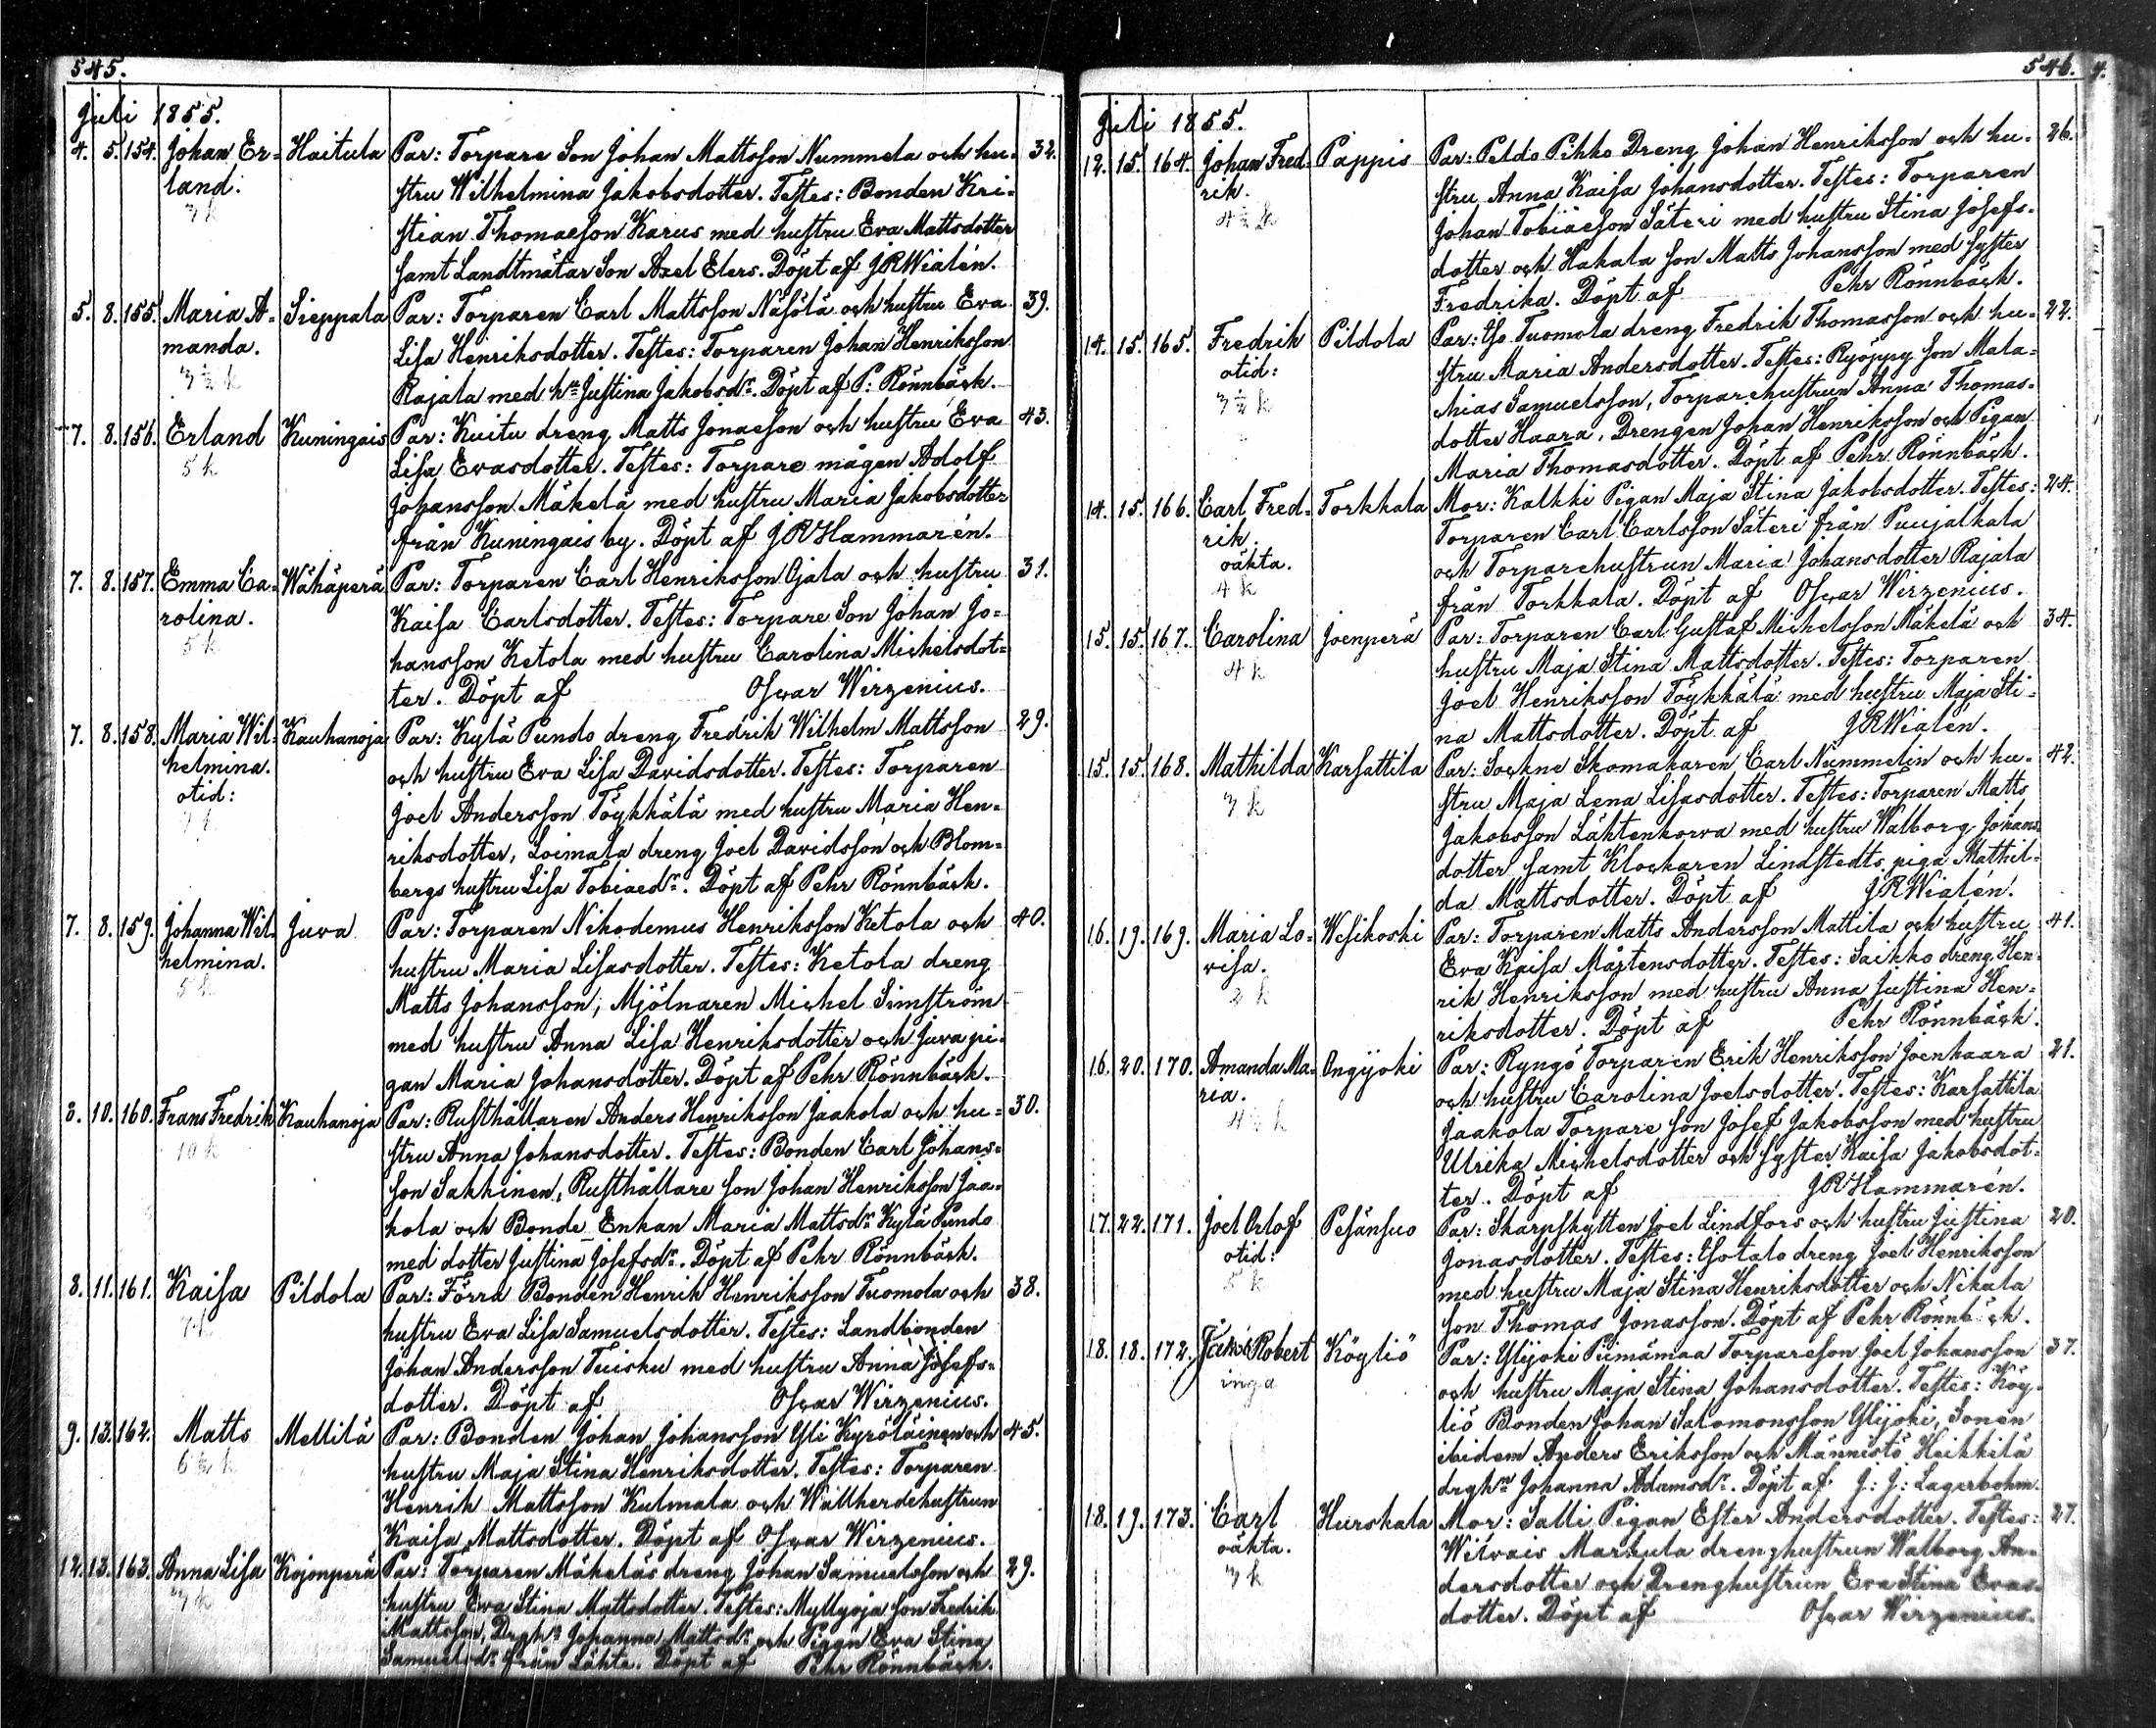 545.
Juli 1855.
4. 5. 154. Johan Er- Haitula Par: Torpare Son Johan Mattsson Nummela och hu- 32.
land. stru Wilhelmina Jakobsdotter. Testes: Bonden Kri-
3 k stian Thomasson Karus med hustru Eva Mattsdotter
samt Landtmätar Son Axel Elers. Döpt af JRWialén.
5. 8. 155. Maria A- Sieppala Par: Torparen Carl Mattsson Näsölä och hustru Eva 39.
manda. Lisa Henriksdotter. Testes: Torparen Johan Henriksson
3 ½ k Rajala med hu Justina Jakobsdr. Döpt af P: Rönnbäck.
7. 8. 156. Erland Kuningais Par: Kuitu dreng Matts Jonasson och hustru Eva 43.
5 k Lisa Evasdotter. Testes: Torpare mågen Adolf
Johansson Mäkelä med hustru Maria Jakobsdotter
från Kuningais by. Döpt af JRHammarén.
7. 8. 157. Emma Ca- Wähäperä Par: Torparen Carl Henriksson Ojala och hustru 31.
rolina. Kaisa Carlsdotter. Testes: Torpare Son Johan Jo-
5 k hansson Ketola med hustru Carolina Michelsdot-
ter. Döpt af Oscar Wirzenius.
7. 8. 158. Maria Wil- Kauhanoja Par: Kylä Pundo dreng Fredrik Wilhelm Mattsson 29.
helmina. och hustru Eva Lisa Davidsdotter. Testes: Torparen
otid: Joel Andersson Töykkälä med hustru Maria Hen-
riksdotter, Loimala dreng Joel Davidsson och Blom-
bergs hustru Lisa Tobiaedr. Döpt af Pehr Rönnbäck.
7. 8. 159. Johanna Wil- Juva Par: Torparen Nikodemus Henriksson Ketola och 40.
helmina. hustru Maria Lisasdotter. Testes: Ketola dreng
5 k Matts Johansson, Mjölnaren Michel Simström
med hustru Anna Lisa Henriksdotter och Juva pi-
gan Maria Johansdotter. Döpt af Pehr Rönnbäck.
8. 10. 160. Frans Fredrik Kauhanoja Par: Rusthållaren Anders Henriksson Jaakola och hu- 30.
10 k stru Anna Johansdotter. Testes: Bonden Carl Johans-
son Sakkinen, Rusthållare son Johan Henriksson Jaa-
kola och Bonde Enkan Maria Mattsdr Kylä Pundo
med dotter Justina Josefsdr. Döpt af Pehr Rönnbäck.
8. 11. 161. Kaisa Pildola Par: Förra Bonden Henrik Henriksson Tuomola och 38.
7 k hustru Eva Lisa Samuelsdotter. Testes: Landbonden
Johan Andersson Tuisku med hustru Anna Josefs-
dotter. Döpt af Oscar Wirzenius.
9. 13. 162. Matts Mellilä Par: Bonden Johan Johansson Yli Kyröläinen och 45.
6 ½ k hustru Maja Stina Henriksdotter. Testes: Torparen
Henrik Mattsson Kulmala och Wallherdehustrun
Kaisa Mattsdotter. Döpt af Oscar Wirzenius.
12. 13. 163. Anna Lisa Kojonperä Par: Torparen Mäkeläs dreng Johan Samuelsson och 29.
3 k hustru Eva Stina Mattsdotter. Testes: Myllyoja son Fredrik
Mattsson, Drgh Johanna Mattsdr och Pigan Eva Stina
Samuelsdr från Lähte. Döpt af Pehr Rönnbäck.
546.
Juli 1855.
12. 15. 164. Johan Fred- Pappis Par: Peldo Pihko Dreng Johan Henriksson och hu- 26.
rik. stru Anna Kaisa Johansdotter. Testes: Torparen
4 ½ k Johan Tobiaeson Säteri med hustru Stina Josefs-
dotter och Hakala son Matts Johansson med syster
Fredrika. Döpt af Pehr Rönnbäck.
14. 15. 165. Fredrik Pildola Par: Iso Tuomola dreng Fredrik Thomasson och hu- 22.
otid: stru Maria Andersdotter. Testes: Ryöppy son Mata-
3 ½ k thias Samuelsson, Torparehustrun Anna Thomas-
dotter Haara, Drengen Johan Henriksson och Pigan
Maria Thomasdotter. Döpt af Pehr Rönnbäck.
14. 15. 166. Carl Fred- Torkkala Mor: Kalkki Pigan Maja Stina Jakobsdotter. Testes: 24.
rik. Torparen Carl Carlsson Säteri från Puujalkala
oäkta. och Torparehustrun Maria Johansdotter Rajala
4 k från Torkkala. Döpt af Oscar Wirzenius.
15. 15. 167. Carolina Joenperä Par: Torparen Carl Gustaf Michelsson Mäkelä och 34.
4 k hustru Maja Stina Mattsdotter. Testes: Torparen
Joel Henriksson Töykkälä med hustru Maja Sti-
na Mattsdotter. Döpt af JRWialén.
15. 15. 168. Mathilda Karsattila Par: Sockne Skomakaren Carl Nummelin och hu- 42.
3 k stru Maja Lena Lisasdotter. Testes: Torparen Matts
Jakobsson Lähtenkorva med hustru Walborg Johans-
dotter samt Klockaren Lindstedts piga Mathil-
da Mattsdotter. Döpt af JRWialén.
16. 19. 169. Maria Lo- Wesikoski Par: Torparen Matts Andersson Mattila och hustru 41.
visa. Eva Kaisa Mårtensdotter. Testes: Saikko dreng Hen-
2 k rik Henriksson med hustru Anna Justina Hen-
riksdotter. Döpt af Pehr Rönnbäck.
16. 20. 170. Amanda Ma- Ongijoki Par: Ryngö Torparen Erik Henriksson Joenhaara 21.
ria. och hustru Carolina Joelsdotter. Testes: Karsattila
4 ½ k Jaakola Torpare son Josef Jakobsson med hustru
Ulrika Michelsdotter och syster Kaisa Jakobsdot-
ter. Döpt af JRHammarén.
17. 22. 171. Joel Orlof Pesänsuo Par: Skarpskytten Joel Lindfors och hustru Justina 20.
otid: Jonasdotter. Testes: Isotalo dreng Joel Henriksson
5 k med hustru Maja Stina Henriksdotter och Nikala
son Thomas Jonasson. Döpt af Pehr Rönnbäck.
18. 18. 172. Robert Köyliö Par: Ylijoki Piimämaa Torpareson Joel Johansson 37.
inga och hustru Maja Stina Johansdotter. Testes: Köy-
liö Bonden Johan Salomonsson Ylijoki, Sonen
ibidem Anders Eriksson och Männistö Heikkilä
drghn Johanna Adamsdr. Döpt af J: J: Lagerbohm.
18. 19. 173. Carl Hurskala Mor: Salli Pigan Ester Andersdotter. Testes: 27.
oäkta. Wilvais Markula drenghustrun Walborg An-
3 k dersdotter och Drenghustrun Eva Stina Evas-
dotter. Döpt af Oscar Wirzenius.